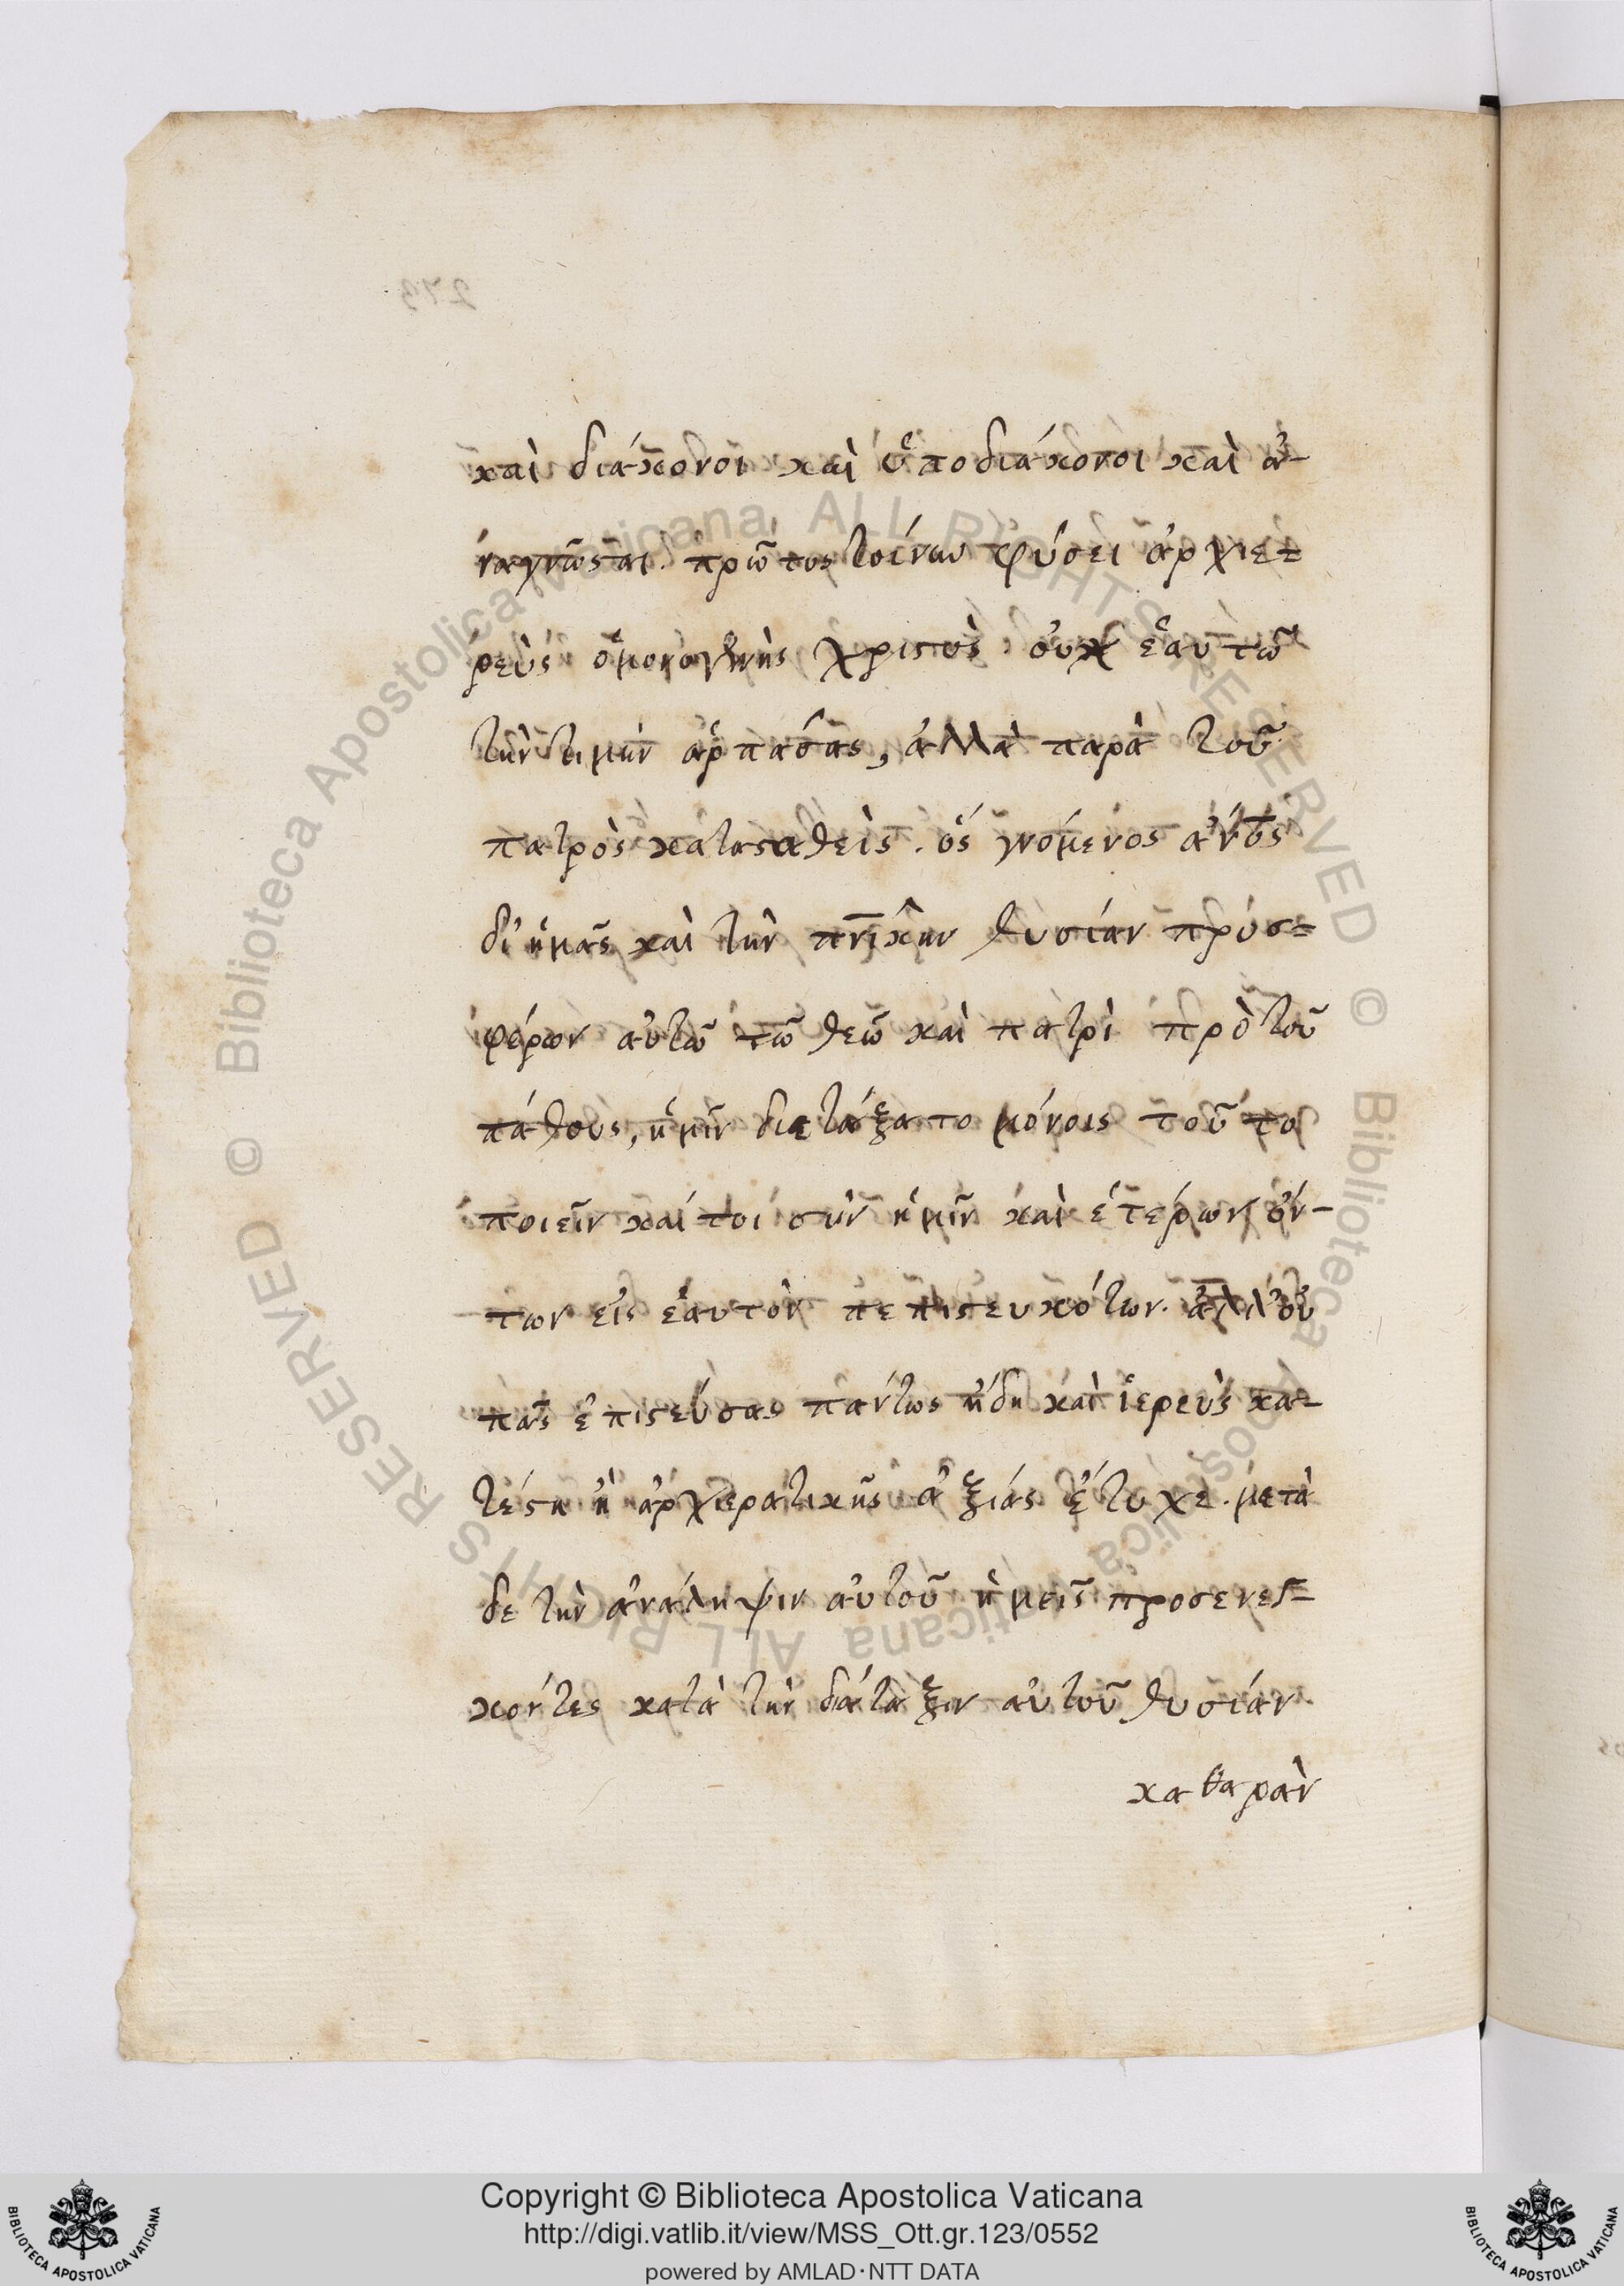 καὶ διάκονοι καὶ ὑποδιάκονοι καὶ ἀ-
ναγνῶσται. πρῶτος τοίνυν φύσει ἀρχιε=
ρεὺς ὁ μονογενὴς χριστὸς. οὐχ ἑαυτῶ
τὴν τιμὴν ἁρπάσας, ἀλλὰ παρὰ τοῦ
πατρὸς κατασταθεὶς. ὅς γενόμενος ἄνος
δι' ἡμᾶς καὶ τὴν πνικὴν θυσίαν προσ=
φέρων αὐτῶ τῶ θεῶ καὶ πατρὶ πρὸ τοῦ
πάθους, ἡμῖν διετάξατο μόνοις τοῦτο
ποιεῖν καίτοι σὺν ἡμῖν καὶ ἑτέρων ὄν-
των εἰς ἑαυτὸν πεπιστευκότων. ἀλλ' οὐ
πᾶς ἐπιστεύσας πάντως ἤδη καὶ ἱερεὺς κα-
τέστη ἢ ἀρχιερατικῆς ἀξίας ἔτυχε. μετὰ
δε τὴν ἀνάληψιν αὐτοῦ ἡμεῖς προσενεγ=
κόντες κατὰ τὴν διάταξιν αὐτοῦ θυσίαν
καθαρὰν
273
© Biblioteca Apostolica Vaticana ALL RIGHTS RESERVED © Biblioteca Apostolica Vaticana ALL RIGHTS RESERVED
Copyright © Biblioteca Apostolica Vaticana
http://digi.vatlib.it/view/MSS_Ott.gr.123/0552
powered by AMLAD·NTT DATA
BIBLIOTECA APOSTOLICA VATICANA
BIBLIOTECA APOSTOLICA VATICANA